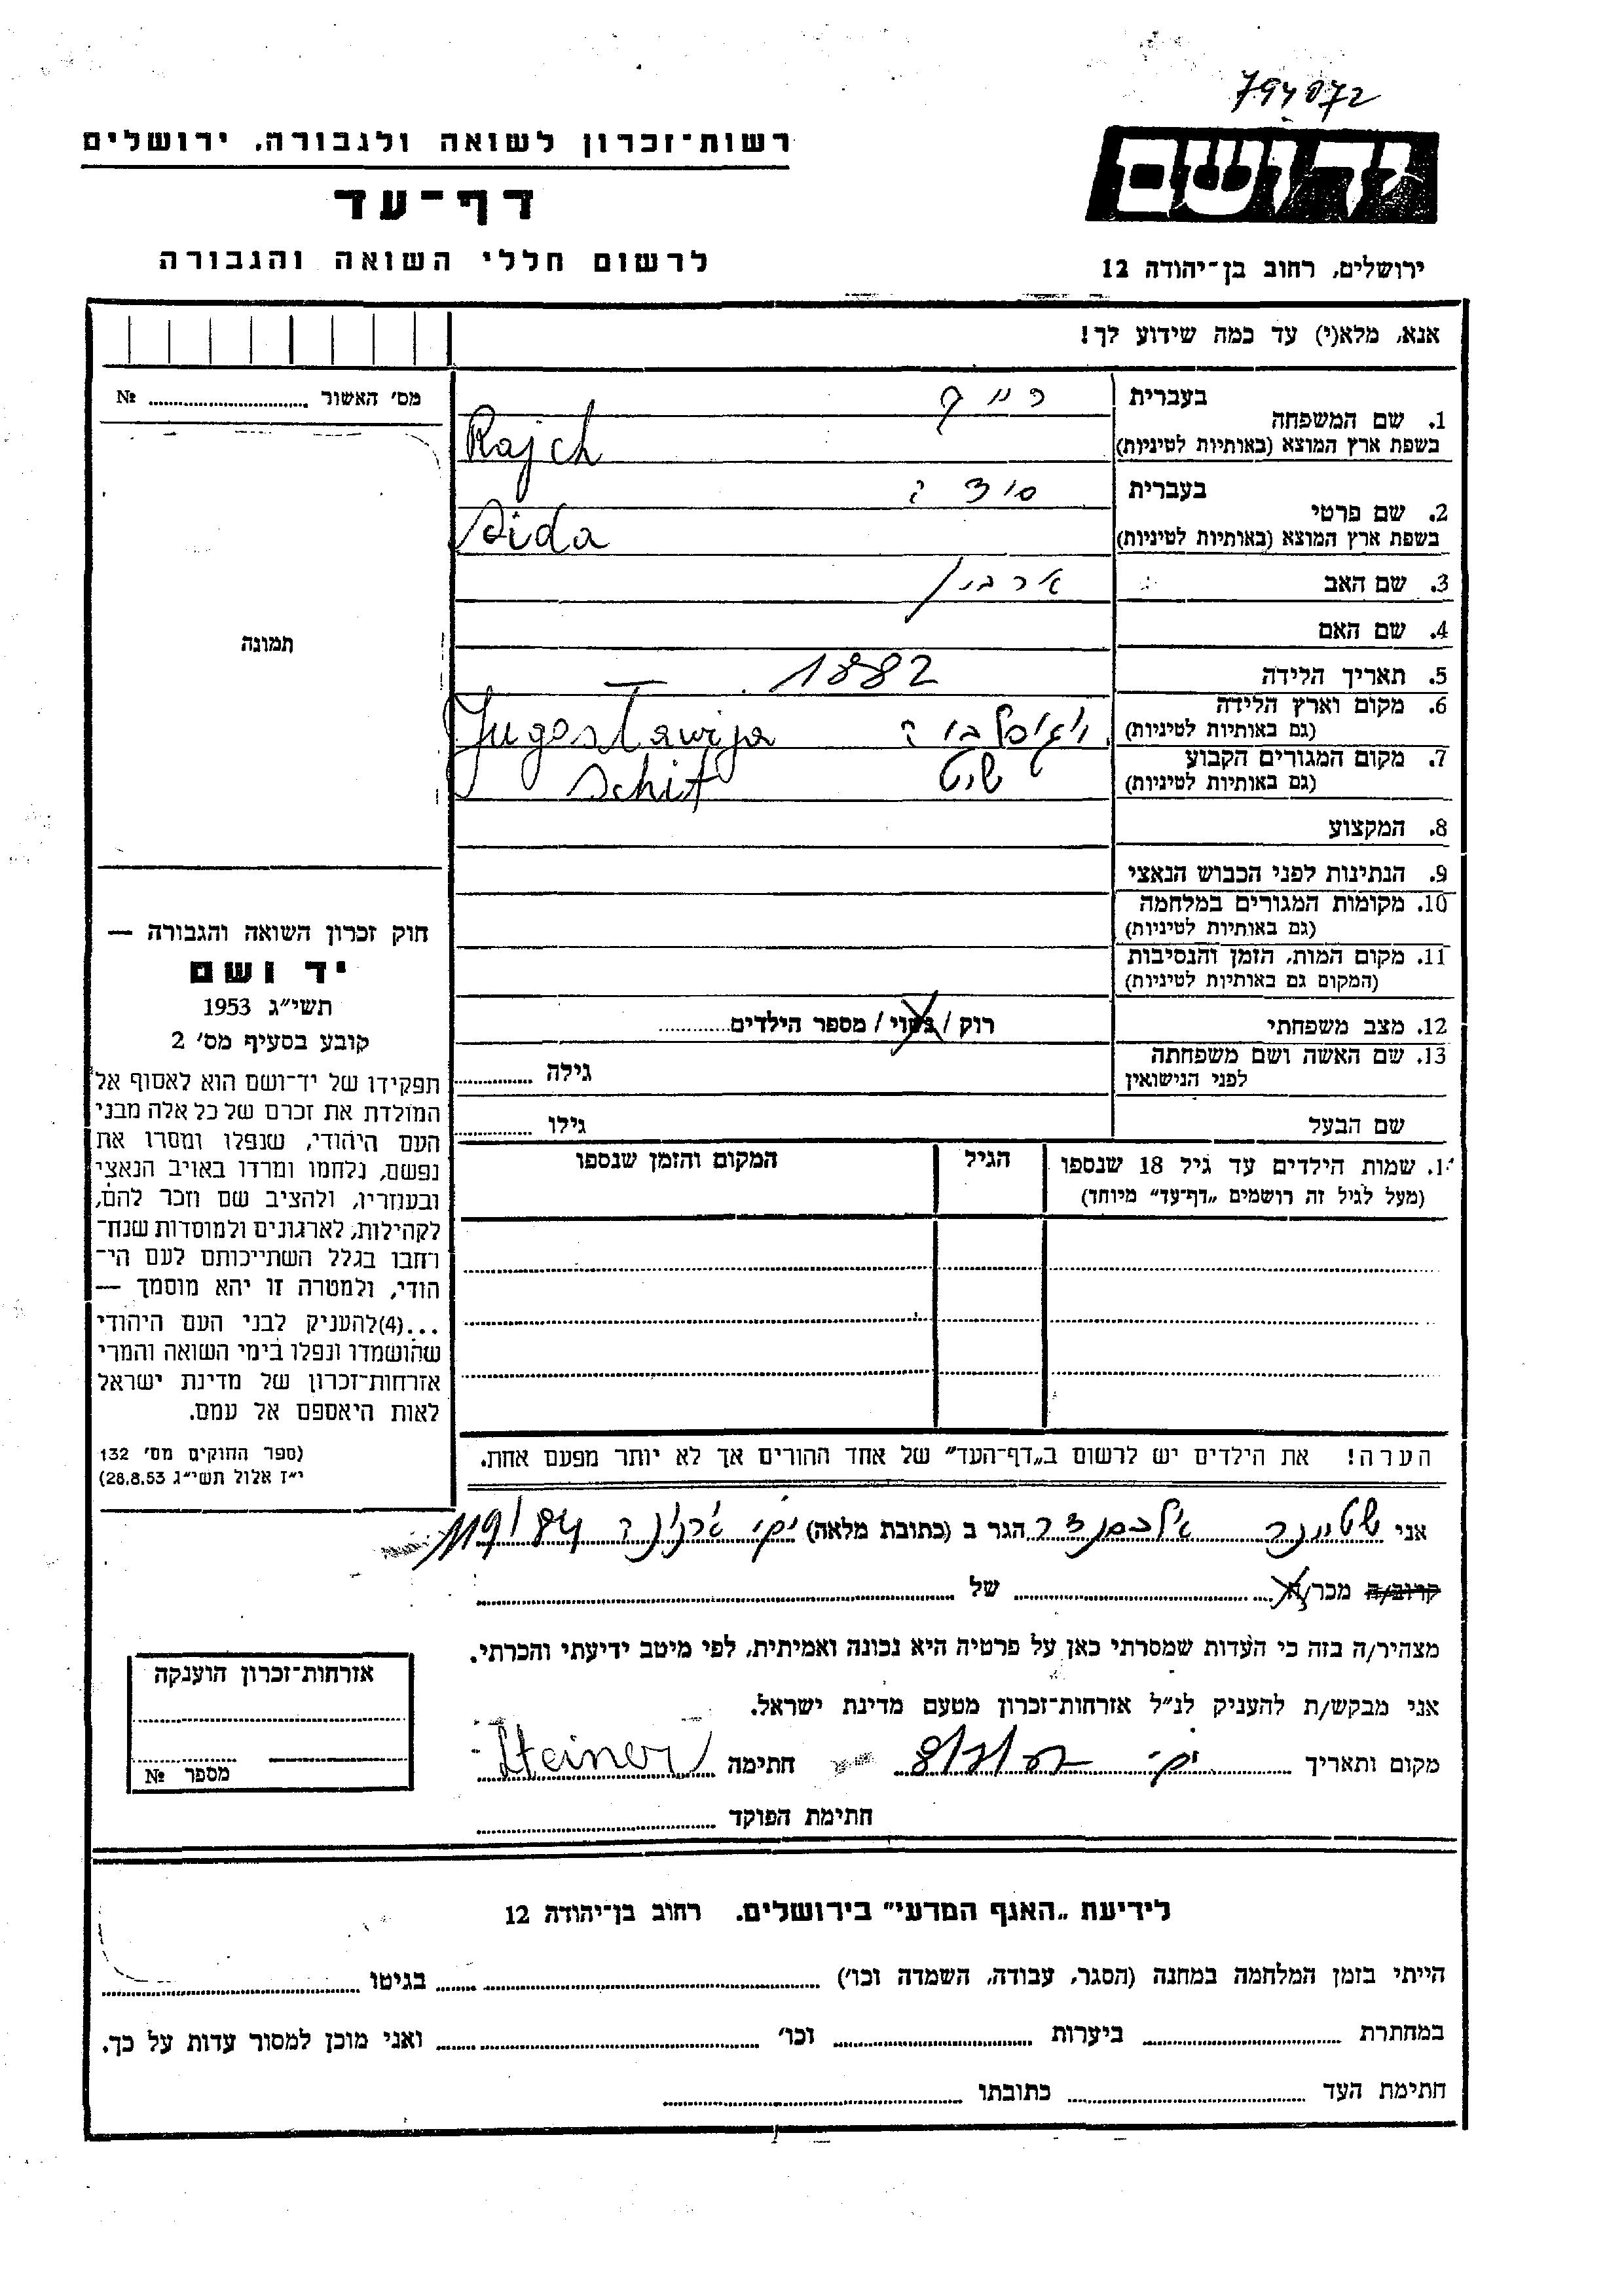 794072
רשות־זכרון לשואה ולגבורה, ירושלים
יד ושם
דף־עד
לרשום חללי השואה והגבורה
ירושלים, רחוב בן־יהודה 12
אנא, מלא(י) עד כמה שידוע לך!
מס' האשור № 
1. שם המשפחה
בעברית רייך
בשפת ארץ המוצא (באותיות לטיניות) Rajch
2. שם פרטי
בעברית
בשפת ארץ המוצא (באותיות לטיניות)
3. שם האב
4. שם האם
5. תאריך הלידה 1882 —
6. מקום וארץ הלידה
(גם באותיות לטיניות) Jugoslawija
7. מקום המגורים הקבוע
(גם באותיות לטיניות) שיט Schit
8. המקצוע
9. הנתינות לפני הכבוש הנאצי
10. מקומות המגורים במלחמה
(גם באותיות לטיניות)
11. מקום המות, הזמן והנסיבות
(המקום גם באותיות לטיניות)
12. מצב משפחתי רוק / נשוי / מספר הילדים
13. שם האשה ושם משפחתה
לפני הנישואין גילה
שם הבעל גילו
תמונה
חוק זכרון השואה והגבורה —
יד ושם
תשי״ג 1953
קובע בסעיף מס' 2
תפקידו של יד־ושם הוא לאסוף אל
המולדת את זכרם של כל אלה מבני
העם היהודי, שנפלו ומסרו את
נפשם, נלחמו ומרדו באויב הנאצי
ובעוזריו, ולהציב שם וזכר להם,
לקהילות, לארגונים ולמוסדות שנח־
רחבו בגלל השתייכותם לעם הי־
הודי, ולמטרה זו יהא מוסמך —
...(4)להעניק לבני העם היהודי
שהושמדו ונפלו בימי השואה והמרי
אזרחות־זכרון של מדינת ישראל
לאות היאספם אל עמם.
(ספר החוקים מס' 132
י״ז אלול תשי״ג 28.8.53)
1. שמות הילדים עד גיל 18 שנספו
(מעל לגיל זה רושמים „דף־עד״ מיוחד)
הגיל
המקום והזמן שנספו
הערה! את הילדים יש לרשום ב„דף־העד״ של אחד ההורים אך לא יותר מפעם אחת.
אני שטיינר אלכסנדר הגר ב (כתובת מלאה) 119/84
קרוב/ה מכר/ה של
מצהיר/ה בזה כי העדות שמסרתי כאן על פרטיה היא נכונה ואמיתית, לפי מיטב ידיעתי והכרתי.
אני מבקש/ת להעניק לנ״ל אזרחות־זכרון מטעם מדינת ישראל.
מקום ותאריך חתימה Steiner
חתימת הפוקד
אזרחות־זכרון הוענקה
מספר №
לידיעת „האגף המדעי״ בירושלים. רחוב בן־יהודה 12
הייתי בזמן המלחמה במחנה (הסגר, עבודה, השמדה וכו') בגיטו
במחתרת ביערות וכו' ואני מוכן למסור עדות על כך.
חתימת העד כתובתו